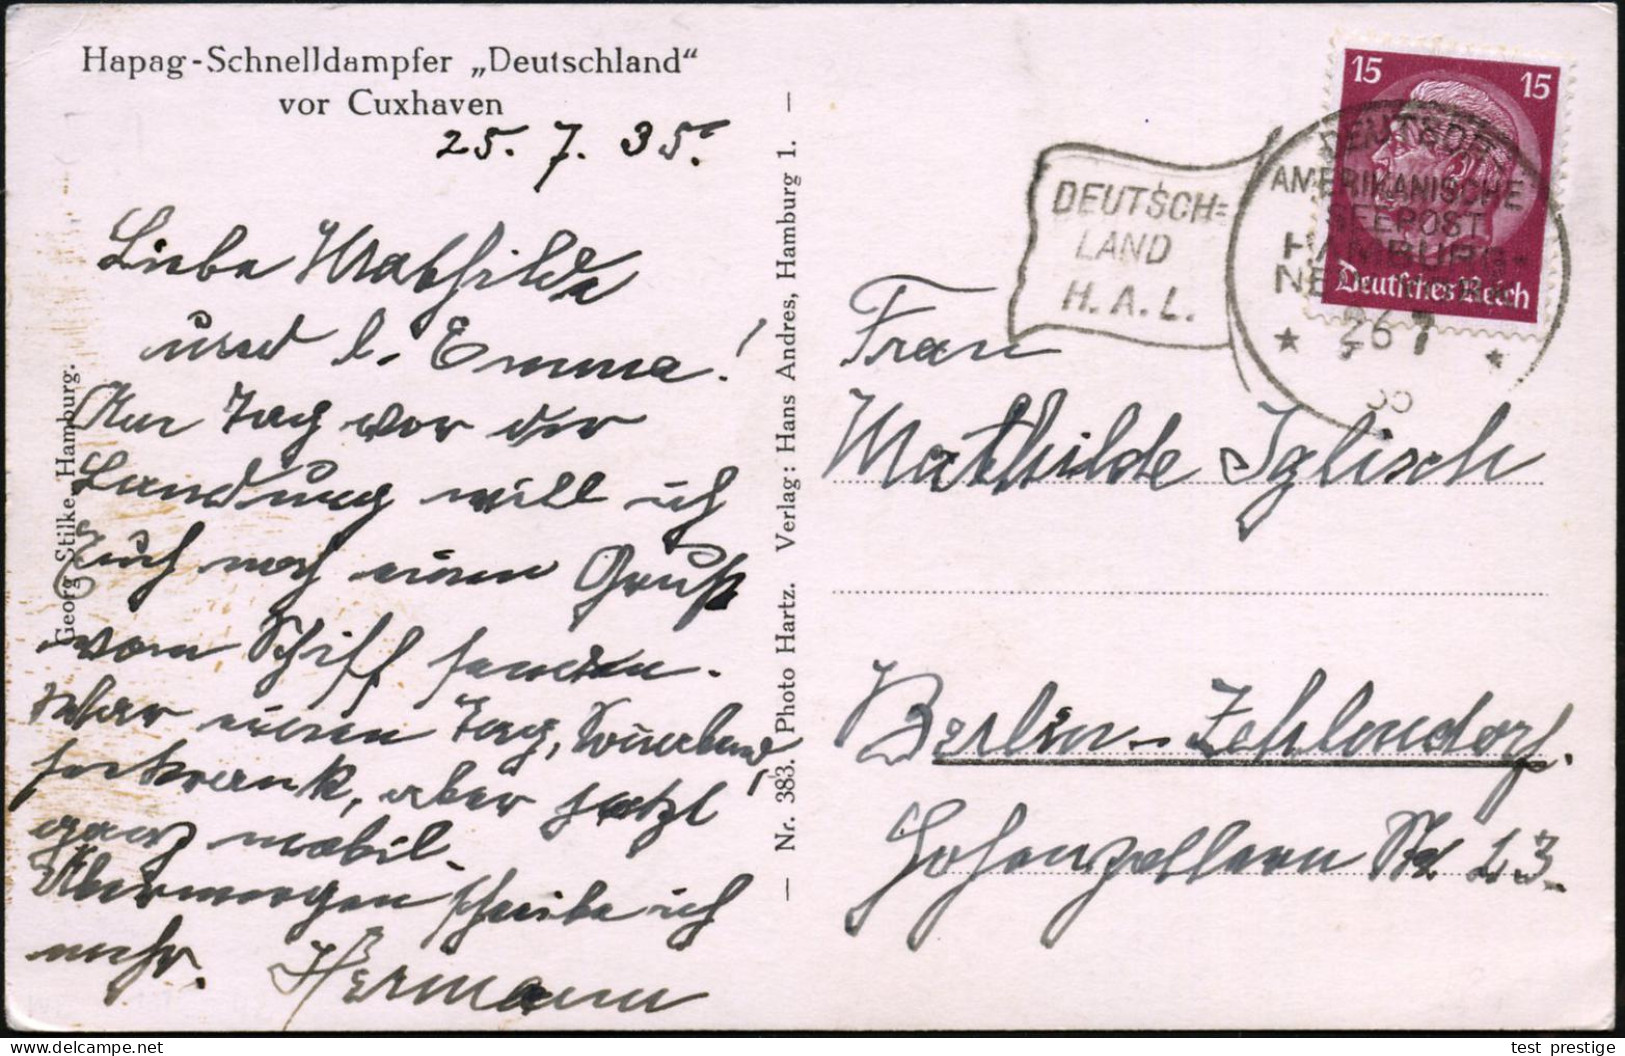 Hapag-Schnelldampfer „Deutschland“
vor Cuxhaven
25. 7. 35.
Liebe Mathilde
und l. Emma!
Am Tag vor der
Landung will ich
Euch noch einen Gruß
vom Schiff senden.
War einen Tag,
seekrank, aber jetzt
ganz mobil.
Übermorgen schreibe ich
mehr. Hermann
Georg Stilke, Hamburg.
— Nr. 383. Photo Hartz. Verlag: Hans Andres, Hamburg 1. —
DEUTSCH=
LAND
H. A. L.
15 15
Deutsches Reich
DEUTSCH
AMERIKANISCHE
SEEPOST
HAMBURG-
NEW
★ 26 7 ★
35
Frau
Mathilde Iglisch
Berlin-Zehlendorf.
Hohenzollern Str 23.
test prestige